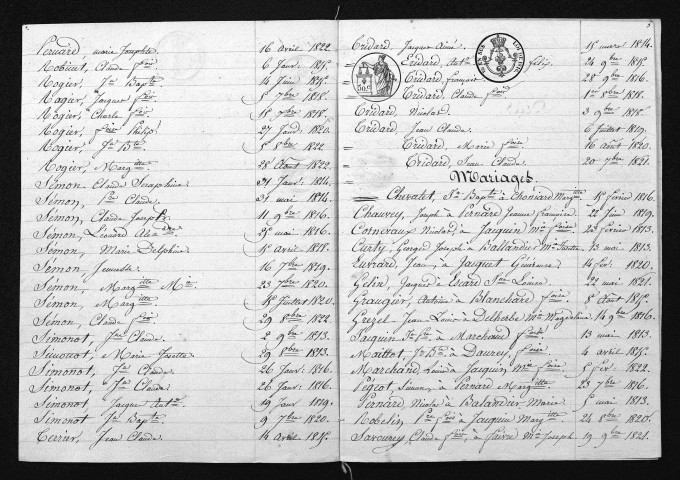 Pernard, marie Josephte. 16 avril 1822.
Robinet, Claude fois 6 Janv. 1815.
Rogier, Jn Bapte 14 Juin 1815.
Rogier, Jaques fois 5 7bre 1818.
Rogier, Charle fois 15 7bre 1818.
Rogier, fois Philip. 27 Janv 1820.
Rogier, Jn Bte 5 8bre 1822.
Rogier, Margtte 28 Aout 1822.
Simon, Claude Seraphine 31 Janv. 1814.
Simon, Pre Claude. 31 mai 1814.
Simon, Claude Joseph. 11 9bre 1816.
Simon, Léonard Alexdre 25 mai 1816.
Simon, Marie Delphine 15 avril 1818.
Simon, Jeannette. 16 7bre 1819.
Simon, Margtte Mie 23 7bre 1820.
Simon, Margtte 15 Juillet 1820.
Simon, Claude fois 29 8bre 1822.
Simonot, Jn Claude. 2 9bre 1813.
Simonot, Marie Josette. 29 9bre 1813.
Simonot, Jn Claude 26 Janv. 1816.
Simonot, Jn Claude. 26 Janv. 1816.
Simonot, Jaque Antne 19 Janv 1819.
Simonot, Jn Bapte 9 7bre 1820.
Terrier, Jean Claude. 14 avril 1815.
Tridard, Jaques Aimé. 15 mars 1814.
Tridard, Antne félix 24 9bre 1815.
Tridard, françois 28 9bre 1816.
Tridard, Claude fois 1er 7bre 1818.
Tridard, Nicolas. 3 9bre 1818.
Tridard, Jean Claude. 6 Juillet 1819.
Tridard, Marie foise 16 aout 1820.
Tridard, Jean Claude. 20 7bre 1821.
Mariages.
Chevalet, Jn Bapte à Margtte 15 févier 1816.
Chauvey, Joseph à Pernard Jeanne françoise 22 Juin 1819.
Cornevaux Nicolas, à Jacquin Mie foise 25 février 1813.
Curty, Georges Joseph à Ballandier 13 mai 1813.
Euvrard Jean, à Jacquet 14 fév. 1820.
Gelin, Jaques à Louise 22 mai 1821.
Graugier, Antoine à Blanchard foise 8 Aout 1815.
Grezel, Jean Louis à Delborbe Mie Magdeleine 14 9bre 1816.
Jacquin à Marchand 13 mai 1813.
Maillot, Jn Bte à Daurey, foise 4 avril 1815.
Marchand, Louis à Jacquin, Mie foise 5 févr 1822.
Pegot Simon, à Pernard Margtte 23 7bre 1816.
Pernard Nicolas à Balandier Marie 5 mai 1813.
Robelin, à Jacquin Margtte 24 8bre 1820.
Savourey Claude fois, à Faivre Mie Joseph. 19 9bre 1821.